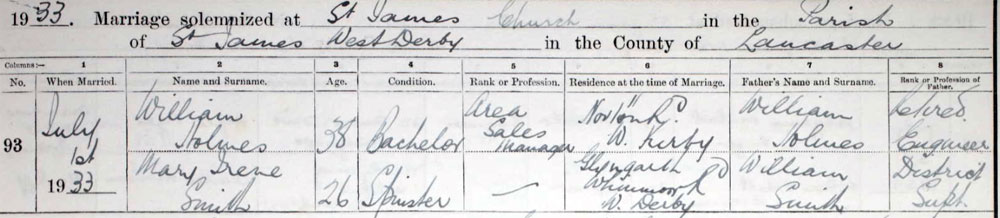 1933. Marriage solemnized at St James Church in the Parish
of St James West Derby in the County of Lancaster
Columns:— 1 2 3 4 5 6 7 8
No. When Married. Name and Surname. Age. Condition. Rank or Profession. Residence at the time of Marriage. Father's Name and Surname. Rank or Profession of Father.
93 July 1st 1933
William Holmes 38 Bachelor Area Sales Manager "Norton" Rd W. Kirby William Holmes Retired Engineer
Mary Irene Smith 26 Spinster — Glyngarth Rd W. Derby William Smith District Supt.